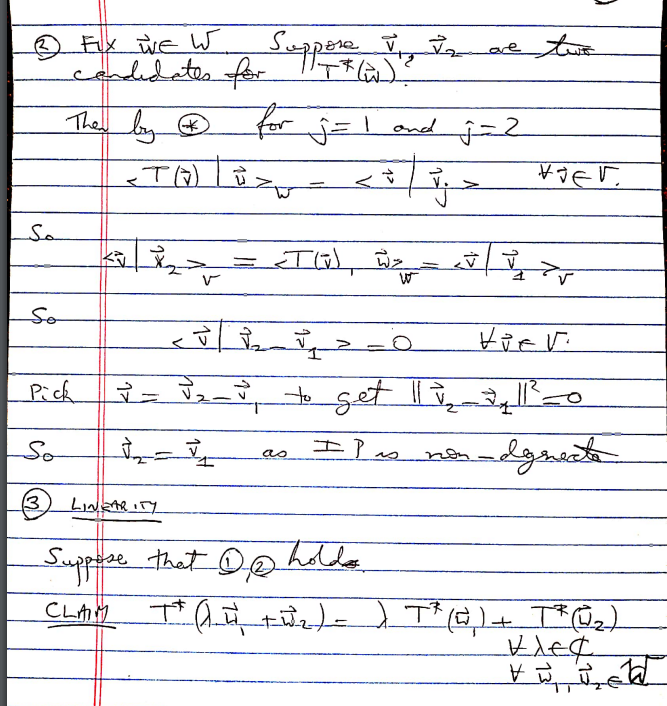 ② Fix w⃗ ∈ W. Suppose v⃗₁, v⃗₂ are two
candidates for "T*(w⃗)".
Then by ⊛ for j=1 and j=2
<T(v⃗) | w⃗>_W = <v⃗ | v⃗_j> ∀ v⃗ ∈ V.
So
<v⃗ | v⃗₂>_V = <T(v⃗), w⃗>_W = <v⃗ | v⃗₁>_V
So
<v⃗ | v⃗₂ - v⃗₁> = 0 ∀ v⃗ ∈ V.
Pick v⃗ = v⃗₂ - v⃗₁ to get ||v⃗₂ - v⃗₁||² = 0
So v⃗₂ = v⃗₁ as IP is non-degnerate
③ LINEARITY
Suppose that ①,② holds.
CLAIM T*(λw⃗₁ + w⃗₂) = λ T*(w⃗₁) + T*(w⃗₂)
∀ λ ∈ ℂ
∀ w⃗₁, w⃗₂ ∈ W